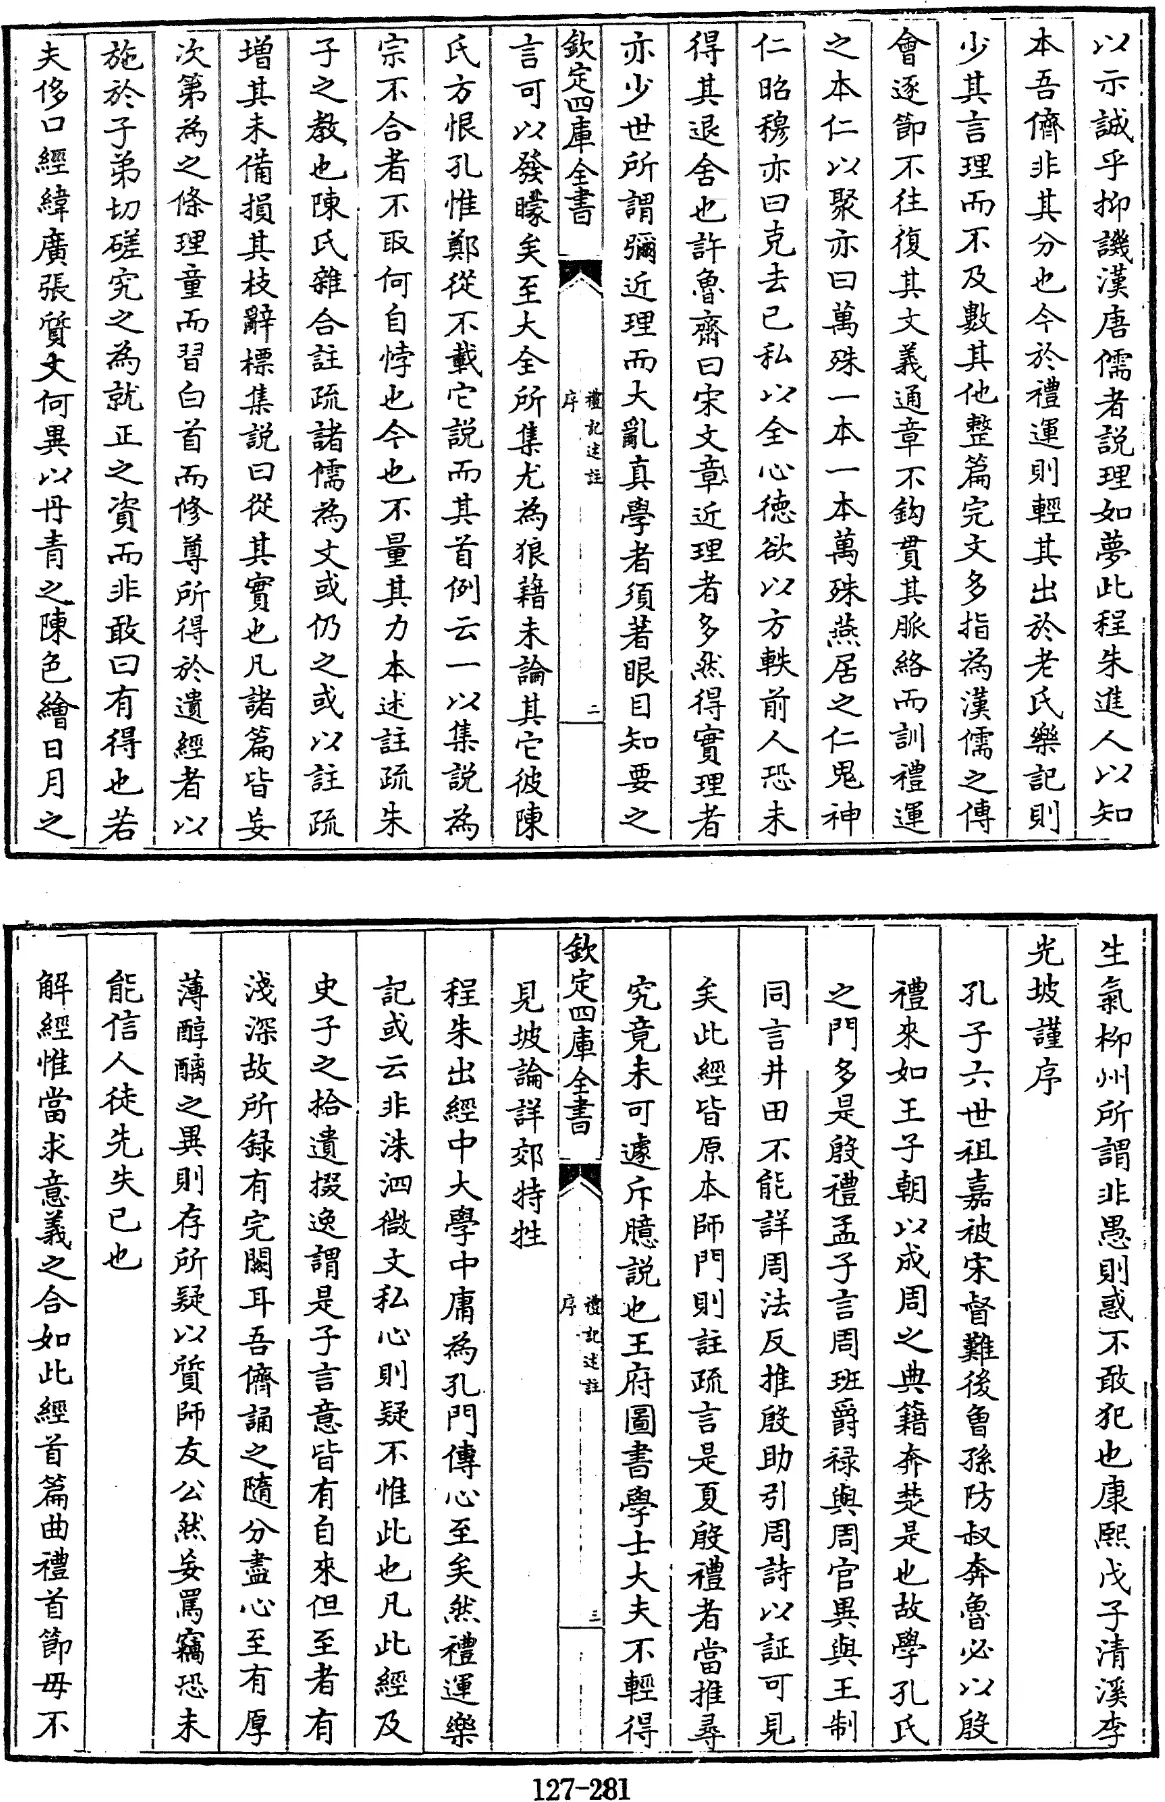 以示誠乎抑譏漢唐儒者説理如夢此程朱進人以知
本吾儕非其分也今於禮運則輕其出於老氏樂記則
少其言理而不及數其他整篇完文多指為漢儒之傳
會逐節不往復其文義通章不鈎貫其脈絡而訓禮運
之本仁以聚亦曰萬殊一本一本萬殊燕居之仁鬼神
仁昭穆亦曰克去己私以全心德欲以方軼前人恐未
得其退舍也許魯齋曰宋文章近理者多然得實理者
亦少世所謂彌近理而大亂真學者須著眼目知要之
欽定四庫全書
禮記述註
序
二
言可以發矇矣至大全所集尤為狼藉未論其它彼陳
氏方恨孔惟鄭從不載它説而其首例云一以集説為
宗不合者不取何自悖也今也不量其力本述註疏朱
子之教也陳氏雜合註疏諸儒為文或仍之或以註疏
增其未備損其枝辭標集説曰從其實也凡諸篇皆妄
次第為之條理童而習白首而修尊所得於遺經者以
施於子弟切磋究之為就正之資而非敢曰有得也若
夫侈口經緯廣張質文何異以丹青之陳色繪日月之
生氣柳州所謂非愚則惑不敢犯也康熙戊子清溪李
光坡謹序
孔子六世祖嘉被宋督難後曾孫防叔奔魯必以殷
禮來如王子朝以成周之典籍奔楚是也故學孔氏
之門多是殷禮孟子言周班爵祿與周官異與王制
同言井田不能詳周法反推殷助引周詩以証可見
矣此經皆原本師門則註疏言是夏殷禮者當推尋
究竟未可遽斥臆説也王府圖書學士大夫不輕得
欽定四庫全書
禮記述註
序
三
見坡論詳郊特牲
程朱出經中大學中庸為孔門傳心至矣然禮運樂
記或云非洙泗微文私心則疑不惟此也凡此經及
史子之拾遺掇逸謂是子言意皆有自來但至者有
淺深故所録有完闕耳吾儕誦之隨分盡心至有厚
薄醇醨之異則存所疑以質師友公然妄罵竊恐未
能信人徒先失已也
解經惟當求意義之合如此經首篇曲禮首節毋不
127-281